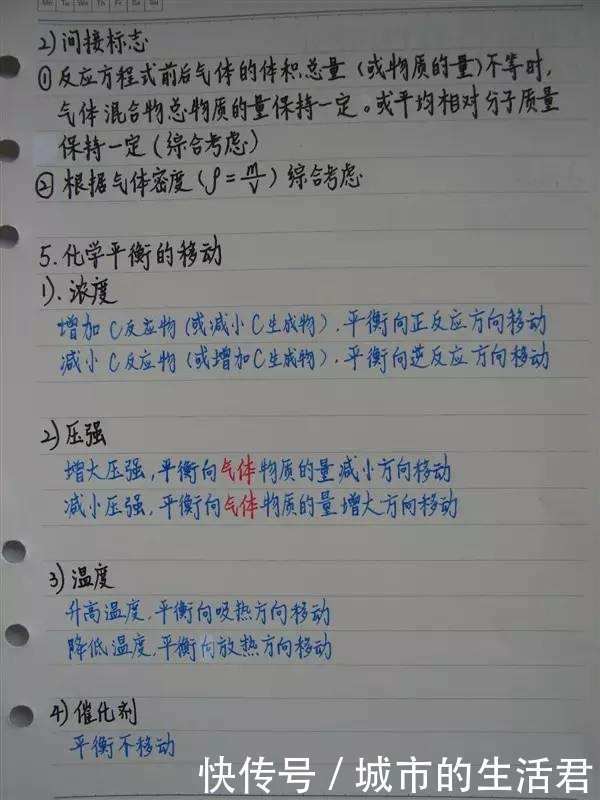 Mon Tu We Th Fr Sa Su
2) 间接标志
① 反应方程式前后气体的体积总量(或物质的量)不等时,
气体混合物总物质的量保持一定。或平均相对分子质量
保持一定(综合考虑)
② 根据气体密度(ρ=m/V)综合考虑
5.化学平衡的移动
1).浓度
增加C反应物(或减小C生成物),平衡向正反应方向移动
减小C反应物(或增加C生成物),平衡向逆反应方向移动
2)压强
增大压强,平衡向气体物质的量减小方向移动
减小压强,平衡向气体物质的量增大方向移动
3)温度
升高温度,平衡向吸热方向移动
降低温度,平衡向放热方向移动
4)催化剂
平衡不移动
快传号/城市的生活君